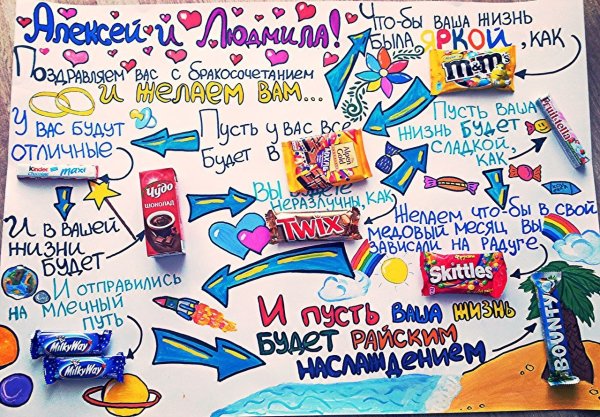 Алексей и Людмила!
Поздравляем вас с бракосочетанием
и желаем вам...
Что-бы ваша жизнь
была яркой, как
m&m's
Пусть ваша
жизнь будет
сладкой,
как
Fruittella
Пусть у вас все
будет в
Alpen Gold
У вас будут
отличные
Kinder
maxi
И в вашей
жизни
будет
Чудо
шоколад
Вы
неразлучны, как
TWIX
Желаем что-бы в свой
медовый месяц вы
зависали на радуге
Skittles
И отправились
на млечный
путь
MilkyWay
MilkyWay
И пусть ваша жизнь
будет райским
наслаждением
BOUNTY